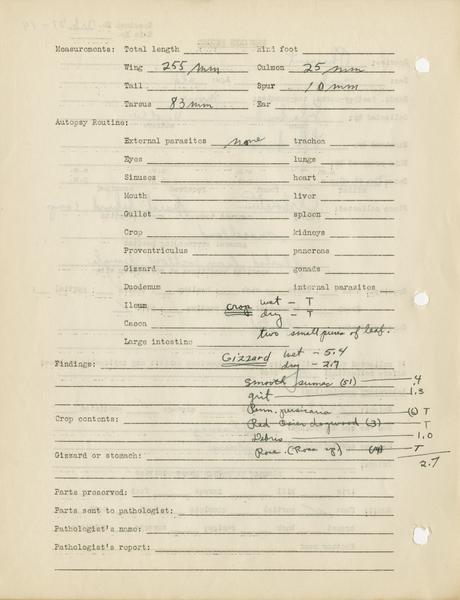 Measurements: Total length Hind foot
Wing 255 mm Culmen 25 mm
Tail Spur 10 mm
Tarsus 83 mm Ear
Autopsy Routine:
External parasites none trachea
Eyes lungs
Sinuses heart
Mouth liver
Gullet spleen
Crop kidneys
Proventriculus pancreas
Gizzard gonads
Duodenum internal parasites
Ileum crop wet - T
Caeca dry - T
Large intestine two small pieces of leaf.
Findings: Gizzard wet - 5.4
dry - 2.7
Smooth sumac (51) .4
grit 1.3
Penn. persicaria (6) T
Crop contents: Red Osier dogwood (3) T
Debris 1.0
Gizzard or stomach: Rose (Rosa sp) T
2.7
Parts preserved:
Parts sent to pathologist:
Pathologist's name:
Pathologist's report: